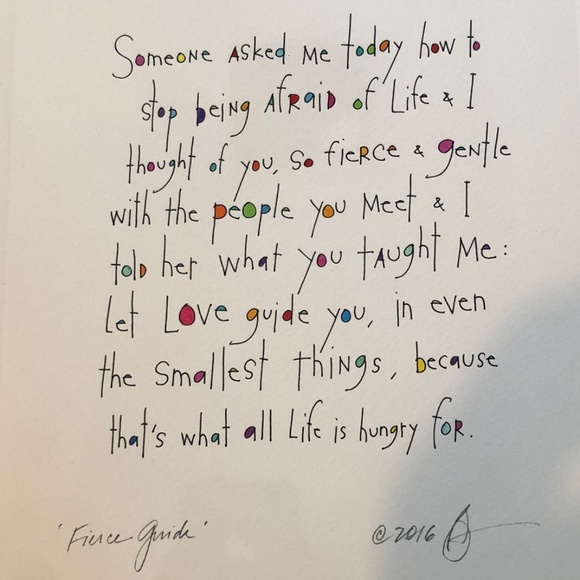 Someone asked me today how to
stop being afraid of life & I
thought of you, so fierce & gentle
with the people you meet & I
told her what you taught me:
let love guide you, in even
the smallest things, because
that's what all life is hungry for.
'Fierce Guide' ©2016